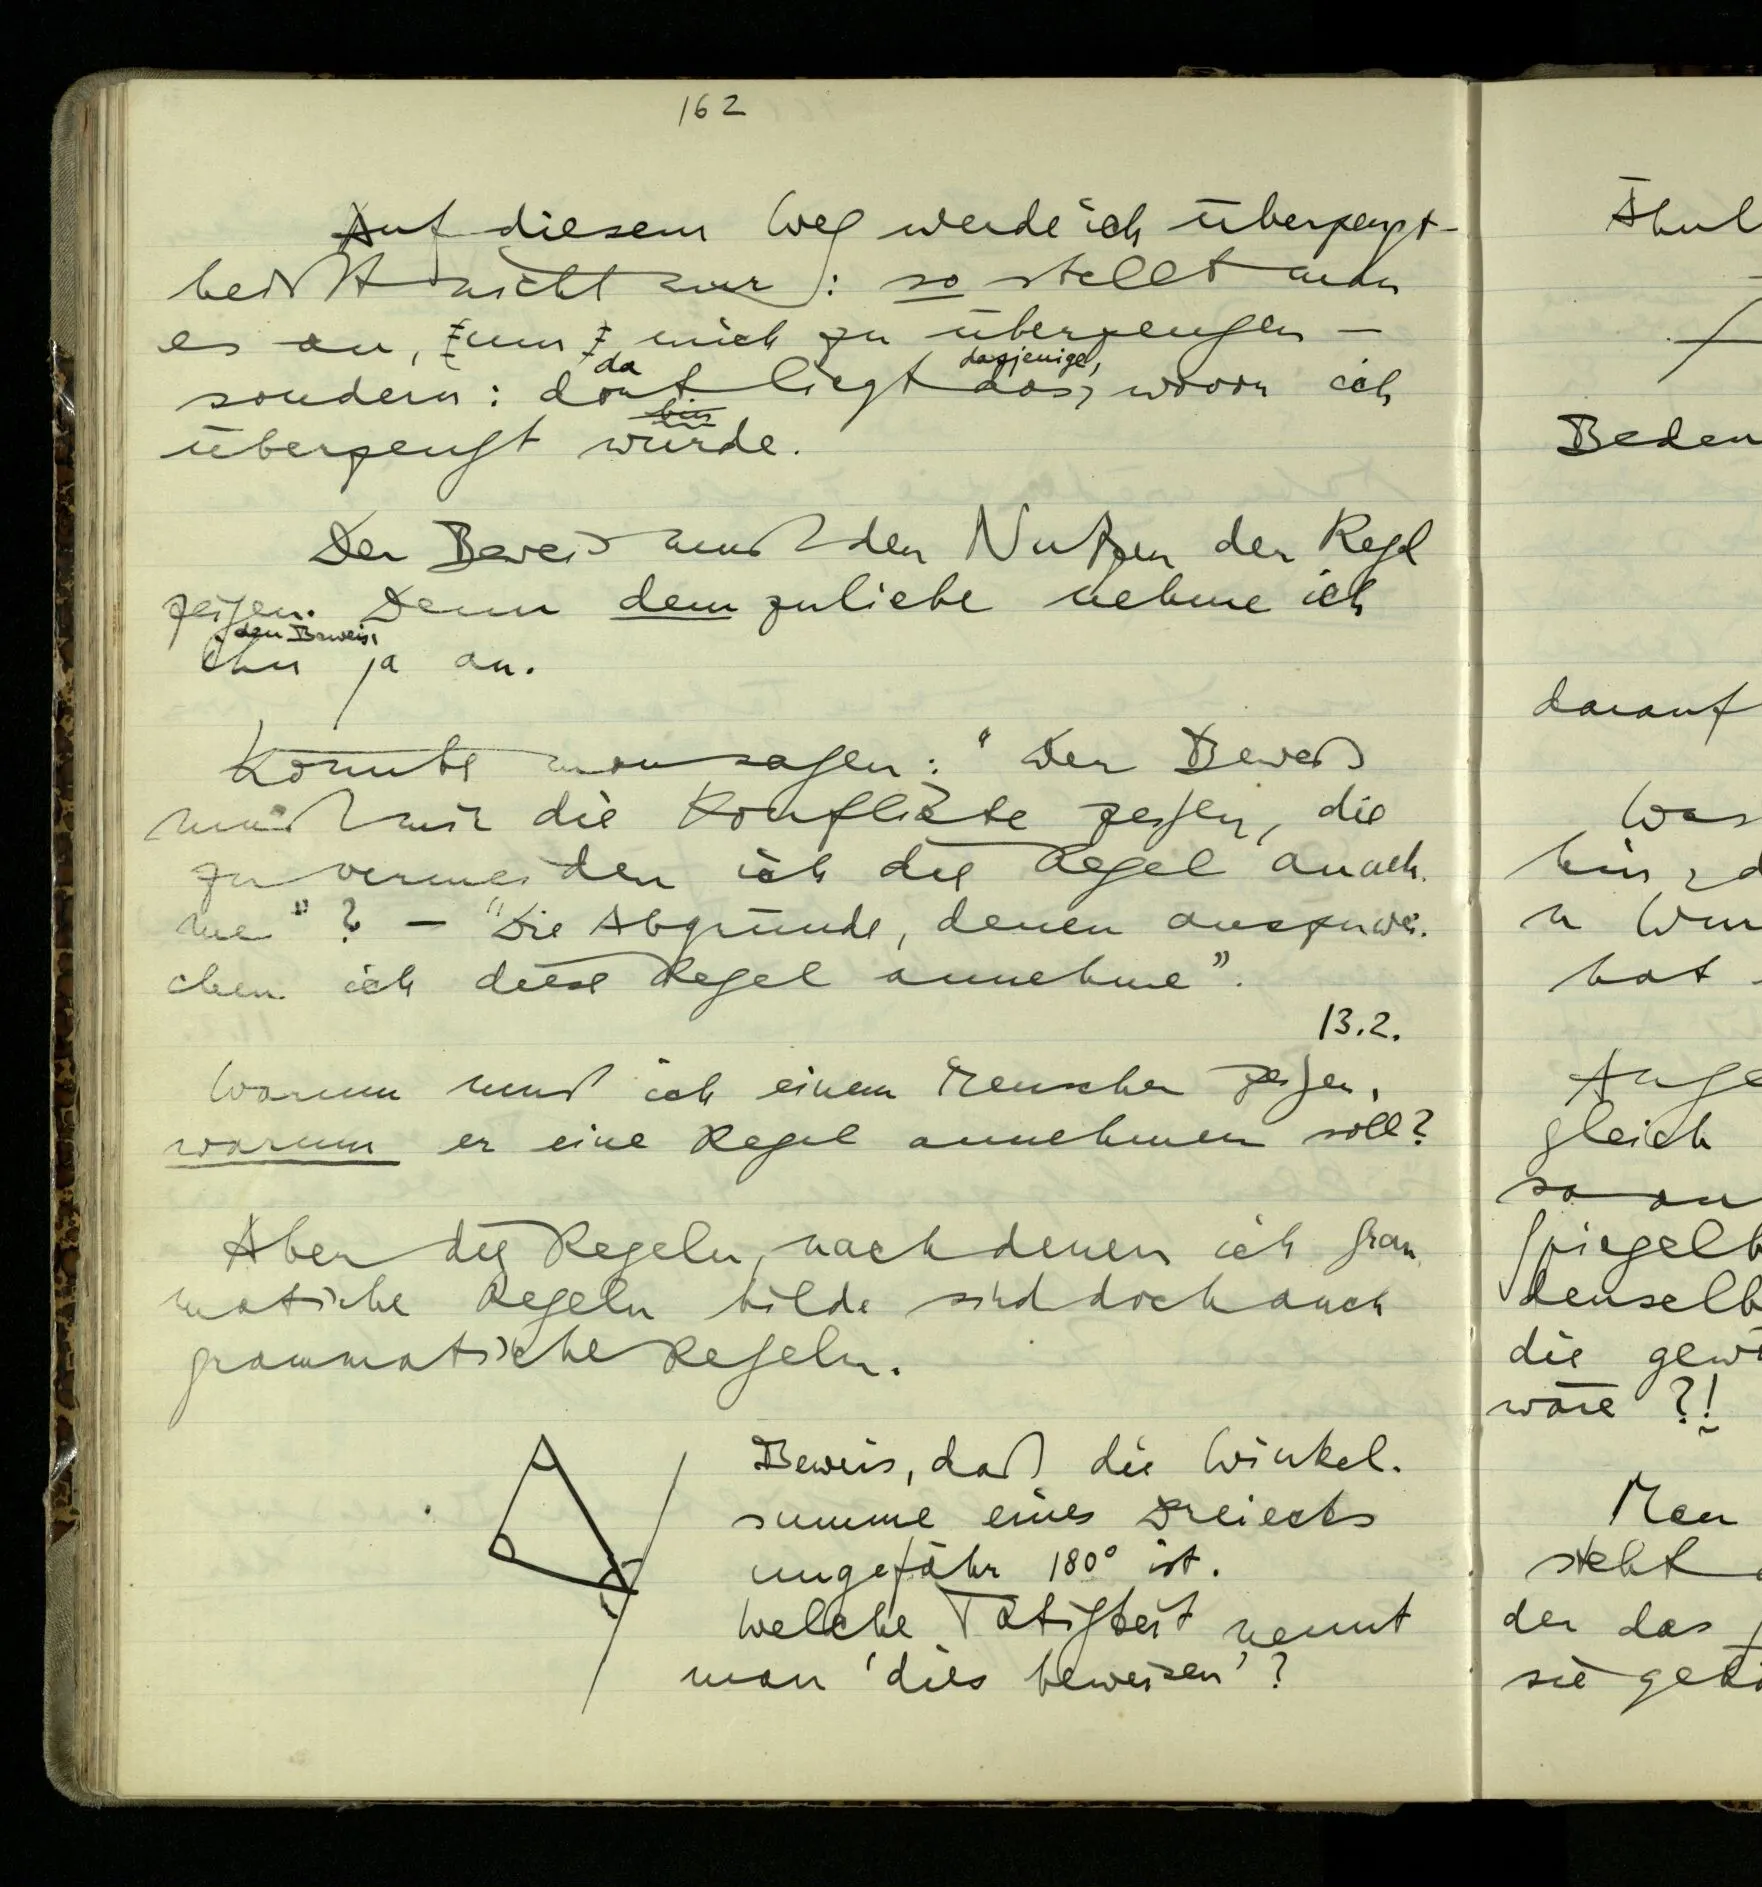 162
Auf diesem Weg werde ich überzeugt –
heißt nicht nur: so stellt man
es an, um mich zu überzeugen –
da dasjenige,
sondern: dort liegt das, wovon ich
bin
überzeugt wurde.
Der Beweis muß den Nutzen der Regel
zeigen. Denn dem zuliebe nehme ich
den Beweis
ihn ja an.
Könnte man sagen: "Der Beweis
muß mir die Konflikte zeigen, die
zu vermeiden ich die Regel anneh-
me"? – "Die Abgründe, denen auszuwei-
chen ich diese Regel annehme".
13.2.
Warum muß ich einem Menschen zeigen,
warum er eine Regel annehmen soll?
Aber die Regeln, nach denen ich gram
matische Regeln bilde sind doch auch
grammatische Regeln.
Beweis, daß die Winkel-
summe eines Dreiecks
ungefähr 180° ist.
Welche Tätigkeit nennt
man 'dies beweisen'?
Ähnl
Bedeu
darauf
Was
hin, d
hat
Ange
gleich
so an
Spiegelb
denselb
die gew
wäre ?!
Man
steht
der das
sie gehö